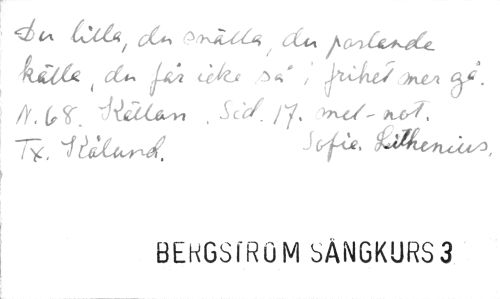 Du lilla, du snälla, du porlande
källa, du får icke så i frihet mer gå.
N. 68. Källan. Sid. 17. mel-not.
Tx. Kålund. Sofie. Lithenius.
BERGSTROM SÅNGKURS 3